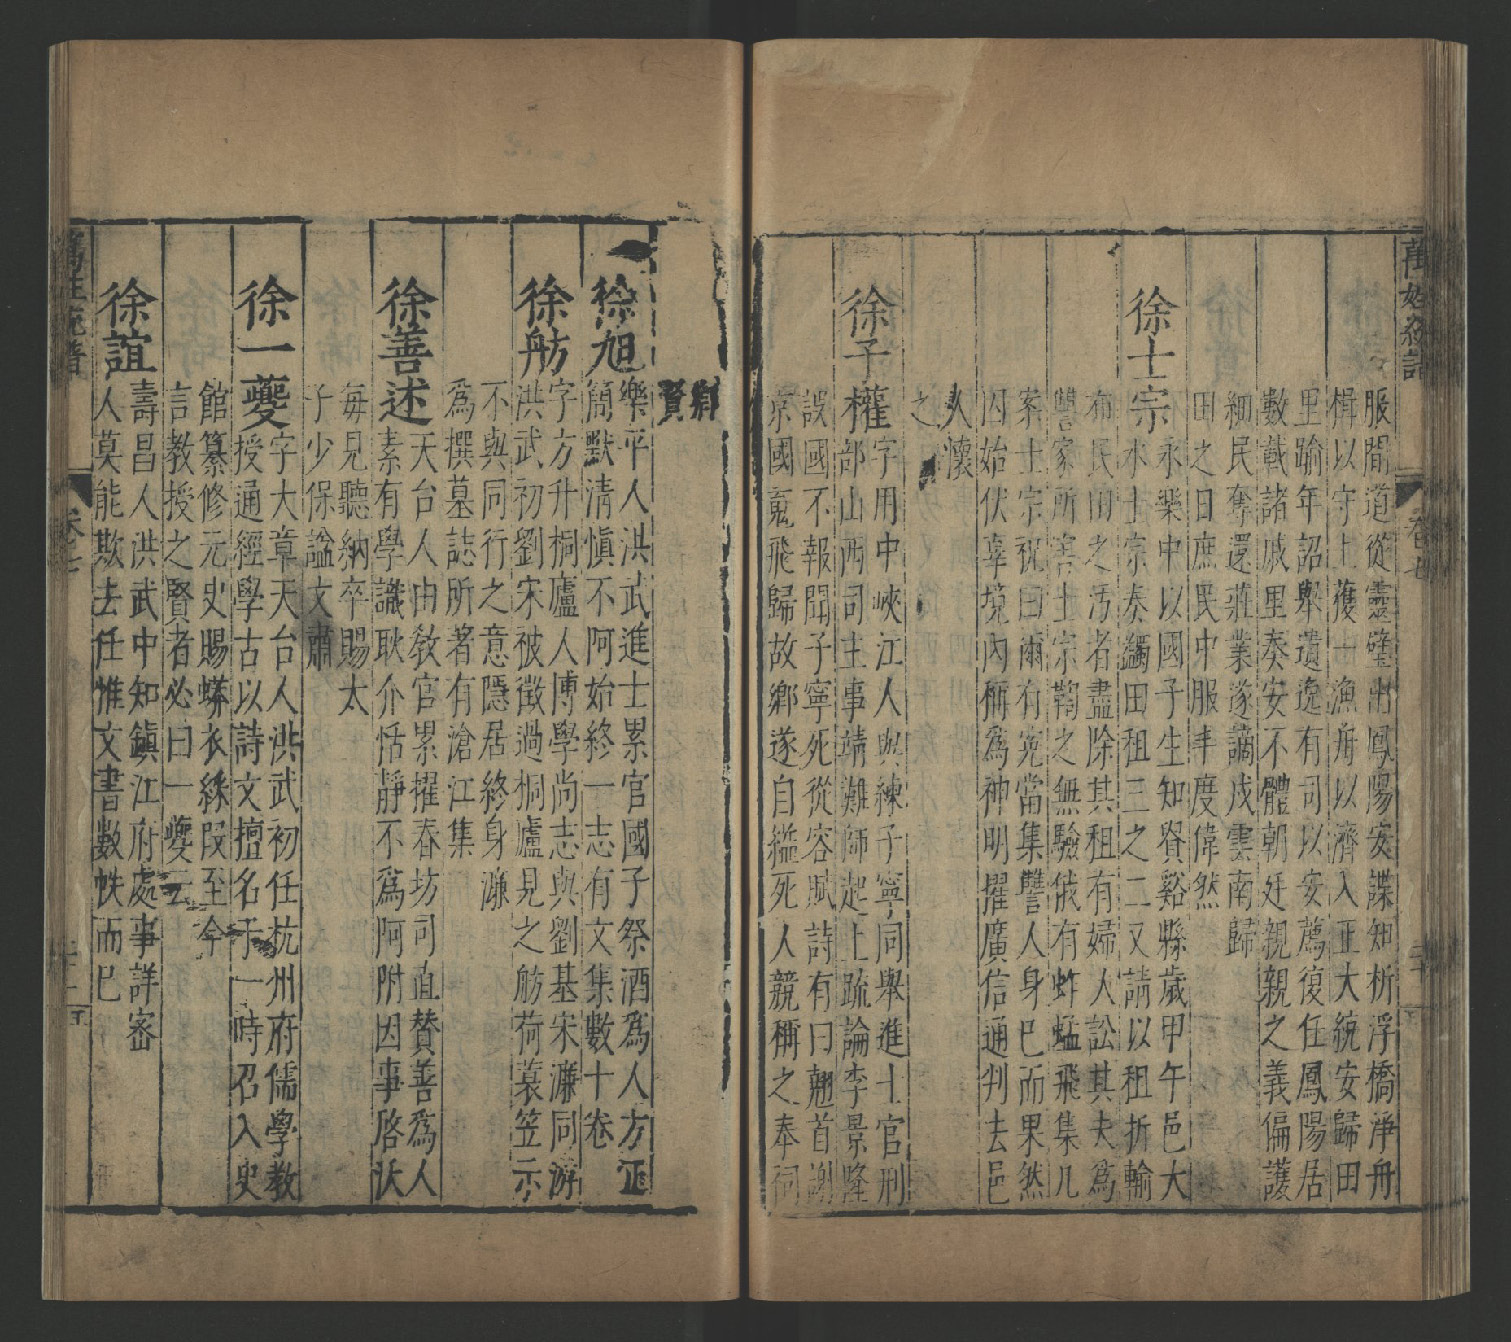 萬姓統譜
卷七
服間道從靈璧出鳳陽安諜知析浮橋淨舟
楫以守上獲一漁舟以濟入正大統安歸田
里踰年詔舉遺逸有司以安薦復任鳳陽居
數載諸戚里奏安不體朝廷親親之義偏護
細民奪還莊業遂謫戍雲南歸
田之日庶民中服丰度偉然
徐士宗
永樂中以國子生知貴谿縣歲甲午邑大
水士宗奏蠲田租三之二又請以租折輸
布民田之汚者盡除其租有婦人訟其夫為
讐家所害士宗鞫之無驗俄有蚱蜢飛集几
案士宗祝曰爾有冤當集讐人身已而果然
因始伏辜境內稱為神明擢廣信通判去邑
人懷
之
徐子權
字用中峽江人與練子寧同舉進士官刑
部山西司主事靖難師起上疏論李景隆
誤國不報聞子寧死從容賦詩有曰翹首謝
京國䰟飛歸故鄉遂自縊死人競稱之奉祠
鄉
賢
徐旭
樂平人洪武進士累官國子祭酒為人方正
簡默清慎不阿始終一志有文集數十卷
徐舫
字方升桐廬人博學尚志與劉基宋濂同游
洪武初劉宋被徵過桐廬見之舫荷蓑笠示
不與同行之意隱居終身濂
為撰墓誌所著有滄江集
徐善述
天台人由敎官累擢春坊司直贊善為人
素有學識耿介恬靜不為阿附因事啓沃
每見聽納卒賜太
子少保謚文肅
徐一夔
字大章天台人洪武初任杭州府儒學教
授通經學古以詩文擅名于一時召入史
館纂修元史賜蟒衣綵段至今
言教授之賢者必曰一夔云
徐誼
壽昌人洪武中知鎮江府處事詳審
人莫能欺去任惟文書數帙而已
萬姓統譜
卷七